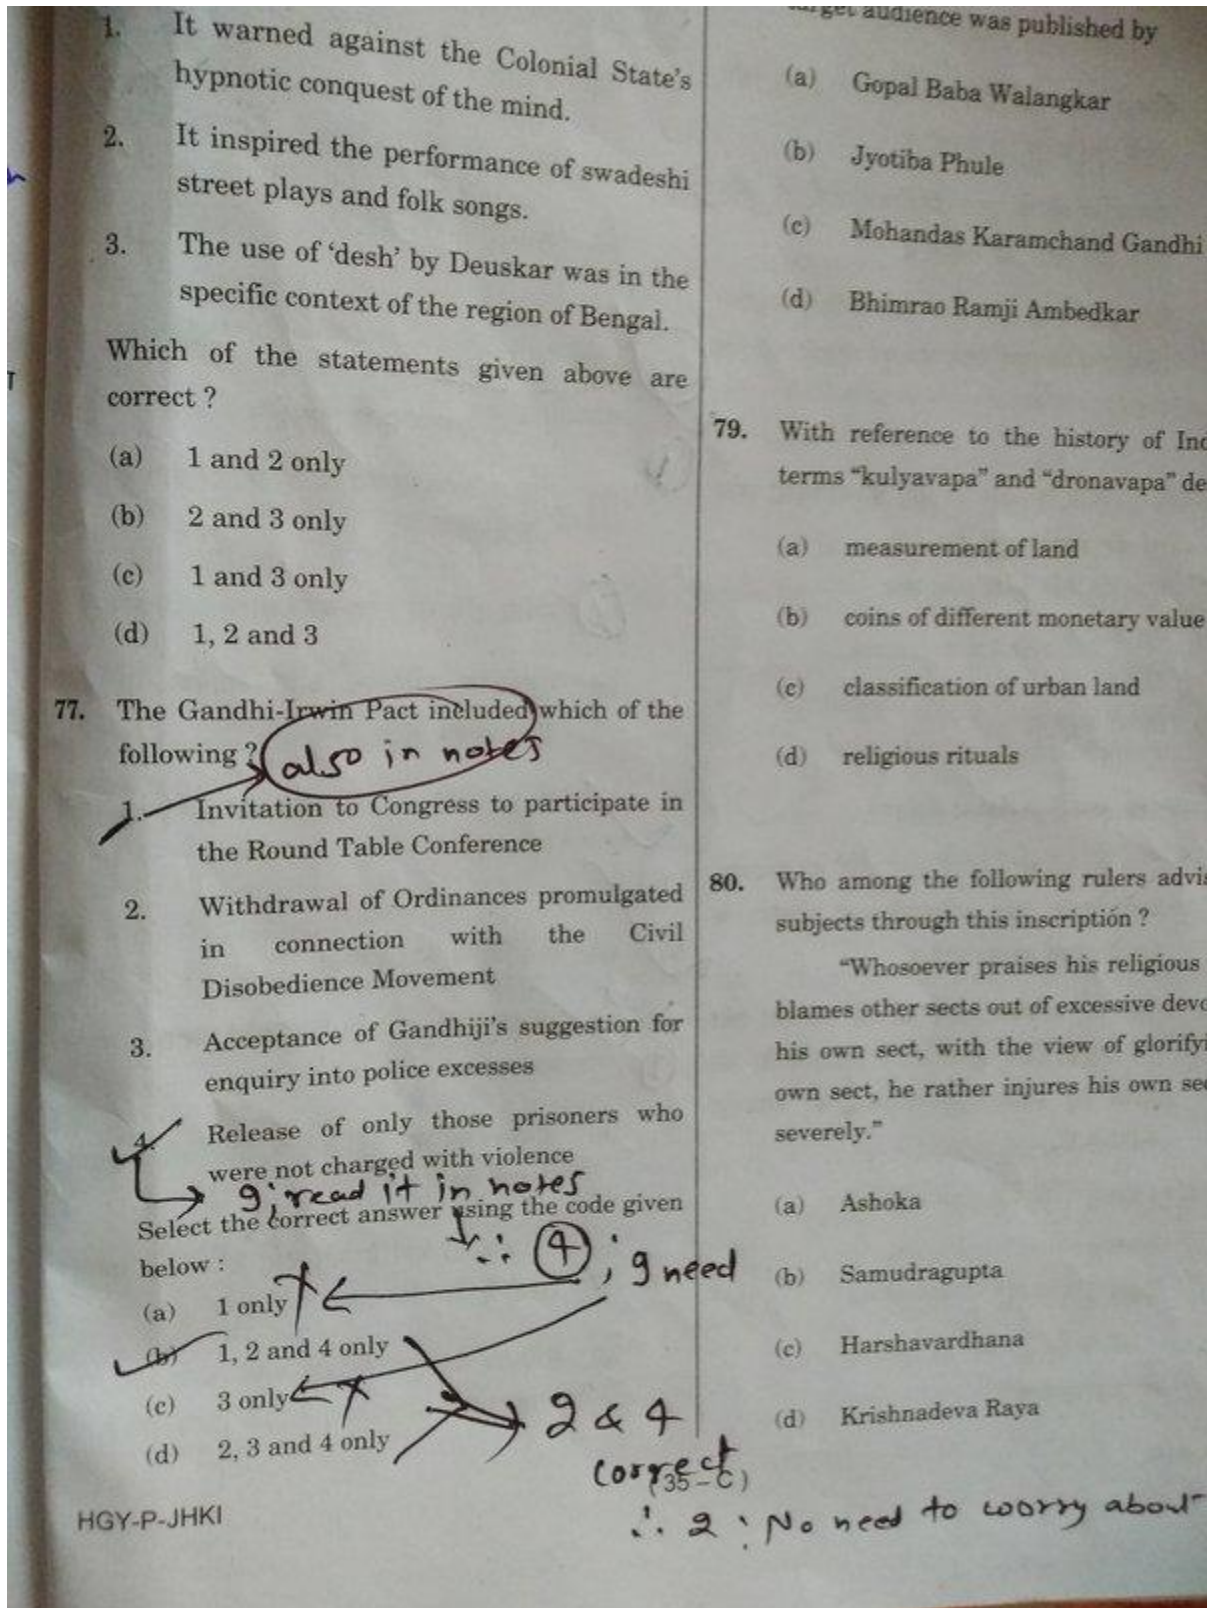 1. It warned against the Colonial State's
hypnotic conquest of the mind.
2. It inspired the performance of swadeshi
street plays and folk songs.
3. The use of 'desh' by Deuskar was in the
specific context of the region of Bengal.
Which of the statements given above are
correct ?
(a) 1 and 2 only
(b) 2 and 3 only
(c) 1 and 3 only
(d) 1, 2 and 3
77. The Gandhi-Irwin Pact included which of the
following ?
also in notes
1. Invitation to Congress to participate in
the Round Table Conference
2. Withdrawal of Ordinances promulgated
in connection with the Civil
Disobedience Movement
3. Acceptance of Gandhiji's suggestion for
enquiry into police excesses
4. Release of only those prisoners who
were not charged with violence
read it in notes
Select the correct answer using the code given
below :
∴ 4 ; need
(a) 1 only
(b) 1, 2 and 4 only
(c) 3 only
(d) 2, 3 and 4 only
2 & 4
correct
∴ 2 : No need to worry about
HGY-P-JHKI
(35-C)
audience was published by
(a) Gopal Baba Walangkar
(b) Jyotiba Phule
(c) Mohandas Karamchand Gandhi
(d) Bhimrao Ramji Ambedkar
79. With reference to the history of
terms "kulyavapa" and "dronavapa"
(a) measurement of land
(b) coins of different monetary value
(c) classification of urban land
(d) religious rituals
80. Who among the following rulers
subjects through this inscription ?
"Whosoever praises his religious
blames other sects out of excessive
his own sect, with the view of
own sect, he rather injures his own
severely."
(a) Ashoka
(b) Samudragupta
(c) Harshavardhana
(d) Krishnadeva Raya